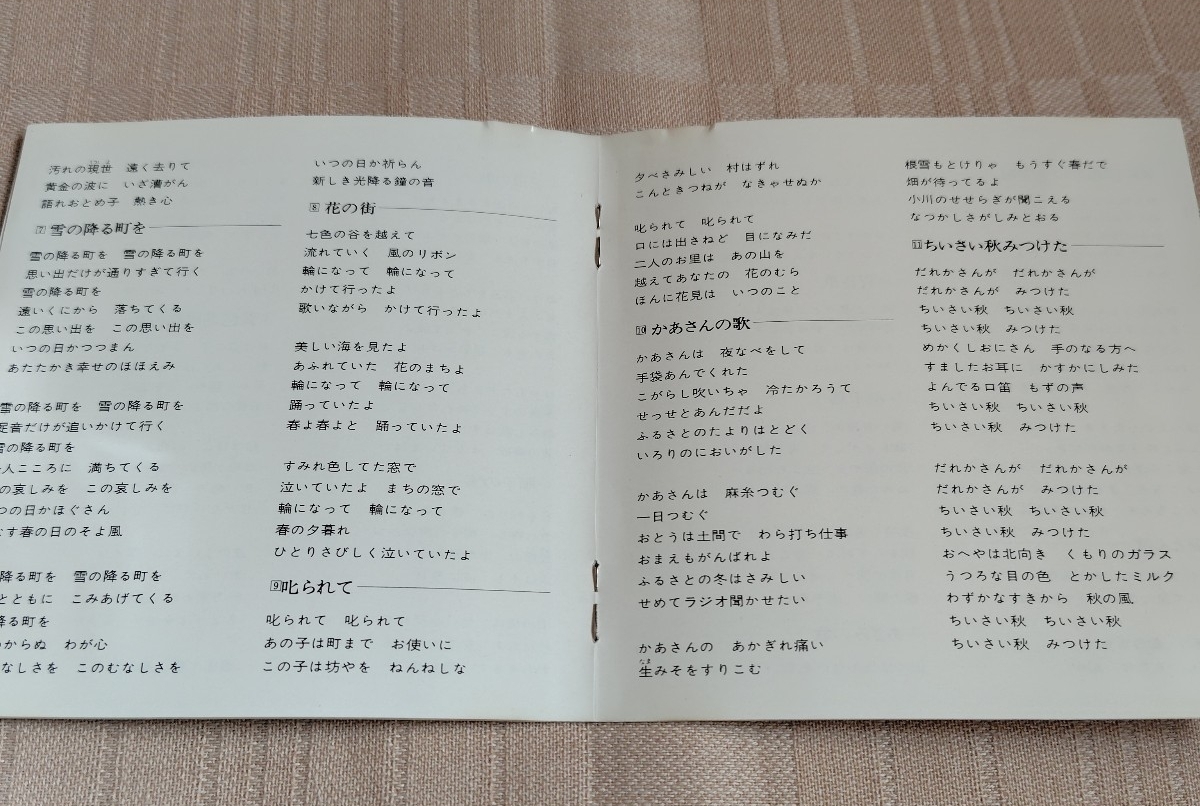 汚れの現世　遠く去りて
黄金の波に　いざ漕がん
語れおとめ子　熱き心
7 雪の降る町を
雪の降る町を　雪の降る町を
思い出だけが通りすぎて行く
雪の降る町を
遠いくにから　落ちてくる
この思い出を　この思い出を
いつの日かつつまん
あたたかき幸せのほほえみ
雪の降る町を　雪の降る町を
足音だけが追いかけて行く
雪の降る町を
人こころに　満ちてくる
の哀しみを　この哀しみを
つの日かほぐさん
す春の日のそよ風
降る町を　雪の降る町を
とともに　こみあげてくる
降る町を
からぬ　わが心
なしさを　このむなしさを
いつの日か祈らん
新しき光降る鐘の音
8 花の街
七色の谷を越えて
流れていく　風のリボン
輪になって　輪になって
かけて行ったよ
歌いながら　かけて行ったよ
美しい海を見たよ
あふれていた　花のまちよ
輪になって　輪になって
踊っていたよ
春よ春よと　踊っていたよ
すみれ色してた窓で
泣いていたよ　まちの窓で
輪になって　輪になって
春の夕暮れ
ひとりさびしく泣いていたよ
9 叱られて
叱られて　叱られて
あの子は町まで　お使いに
この子は坊やを　ねんねしな
夕べさみしい　村はずれ
こんときつねが　なきゃせぬか
叱られて　叱られて
口には出さねど　目になみだ
二人のお里は　あの山を
越えてあなたの　花のむら
ほんに花見は　いつのこと
10 かあさんの歌
かあさんは　夜なべをして
手袋あんでくれた
こがらし吹いちゃ　冷たかろうて
せっせとあんだだよ
ふるさとのたよりはとどく
いろりのにおいがした
かあさんは　麻糸つむぐ
一日つむぐ
おとうは土間で　わら打ち仕事
おまえもがんばれよ
ふるさとの冬はさみしい
せめてラジオ聞かせたい
かあさんの　あかぎれ痛い
なま
生みそをすりこむ
根雪もとけりゃ　もうすぐ春だで
畑が待ってるよ
小川のせせらぎが聞こえる
なつかしさがしみとおる
11 ちいさい秋みつけた
だれかさんが　だれかさんが
だれかさんが　みつけた
ちいさい秋　ちいさい秋
ちいさい秋　みつけた
めかくしおにさん　手のなる方へ
すましたお耳に　かすかにしみた
よんでる口笛　もずの声
ちいさい秋　ちいさい秋
ちいさい秋　みつけた
だれかさんが　だれかさんが
だれかさんが　みつけた
ちいさい秋　ちいさい秋
ちいさい秋　みつけた
おへやは北向き　くもりのガラス
うつろな目の色　とかしたミルク
わずかなすきから　秋の風
ちいさい秋　ちいさい秋
ちいさい秋　みつけた